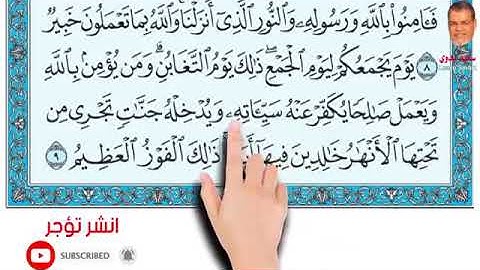 فَـَٔامِنُوا۟ بِٱللَّهِ وَرَسُولِهِۦ وَٱلنُّورِ ٱلَّذِىٓ أَنزَلْنَا وَٱللَّهُ بِمَا تَعْمَلُونَ خَبِيرٌ
٨ يَوْمَ يَجْمَعُكُمْ لِيَوْمِ ٱلْجَمْعِ ذَٰلِكَ يَوْمُ ٱلتَّغَابُنِ وَمَن يُؤْمِنۢ بِٱللَّهِ
وَيَعْمَلْ صَـٰلِحًا يُكَفِّرْ عَنْهُ سَيِّـَٔاتِهِۦ وَيُدْخِلْهُ جَنَّـٰتٍ تَجْرِى مِن
تَحْتِهَا ٱلْأَنْهَـٰرُ خَـٰلِدِينَ فِيهَآ ذَٰلِكَ ٱلْفَوْزُ ٱلْعَظِيمُ ٩
انشر تؤجر
SUBSCRIBED